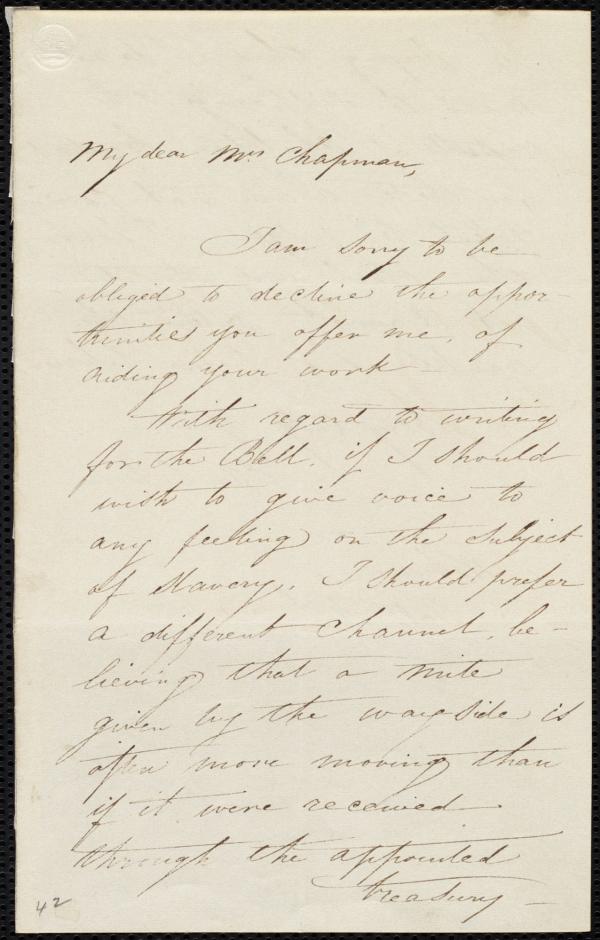 My dear Mrs Chapman,
I am sorry to be
obliged to decline the oppor-
tunities you offer me, of
aiding your work -
With regard to writing
for the Bell, if I should
wish to give voice to
any feeling on the subject
of slavery, I should prefer
a different channel, be-
lieving that a mite
given by the wayside is
often more moving than
if it were received
through the appointed
treasury -
42